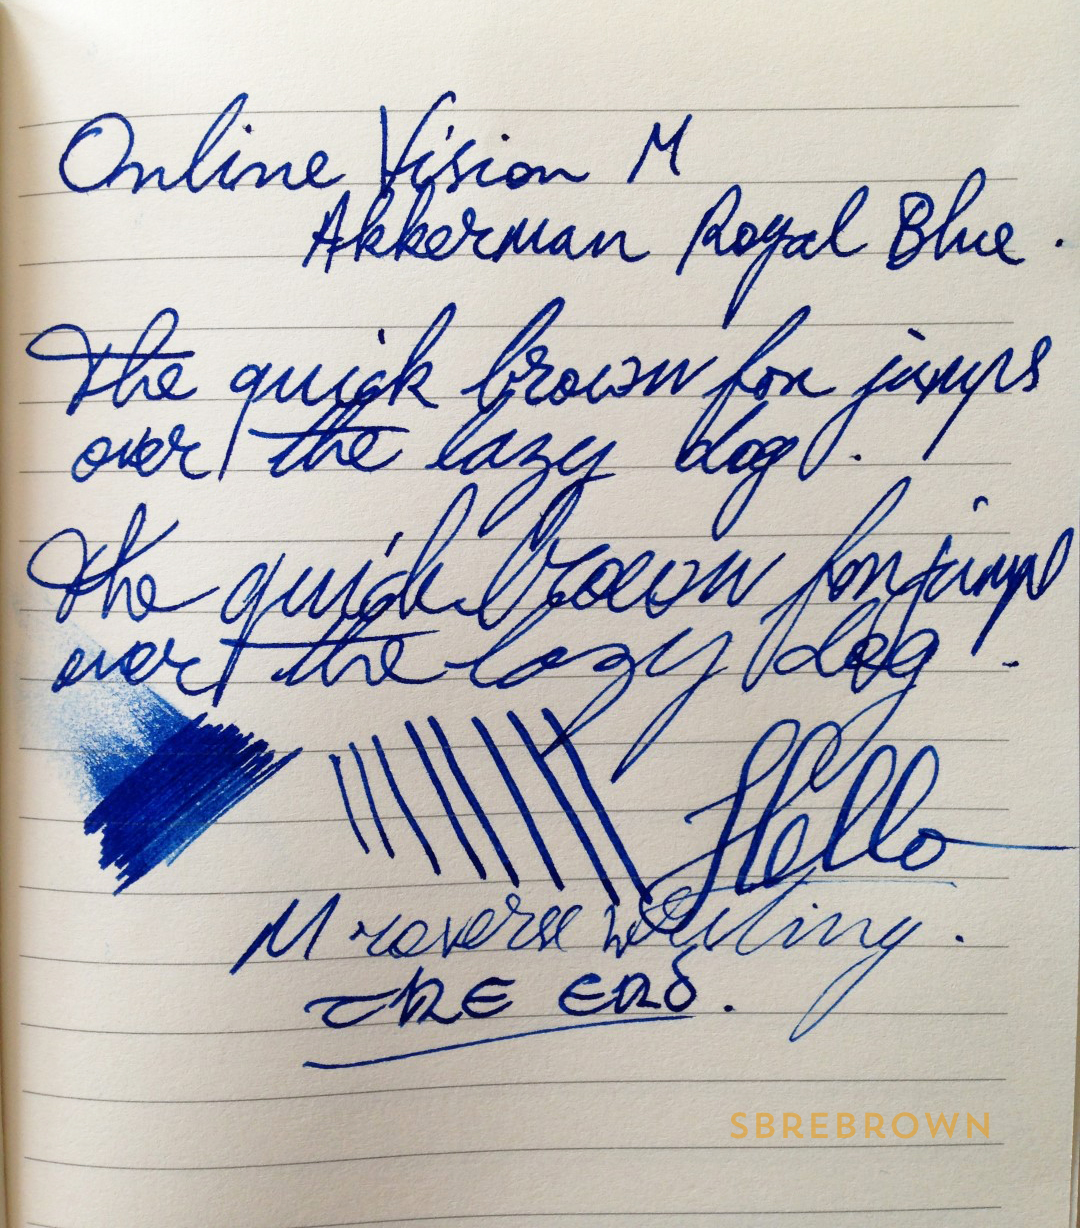 Online Vision M
Akkerman Royal Blue.
The quick brown fox jumps
over the lazy dog.
The quick brown fox jumps
over the lazy dog.
Hello
M reverse writing.
THE END.
SBREBROWN